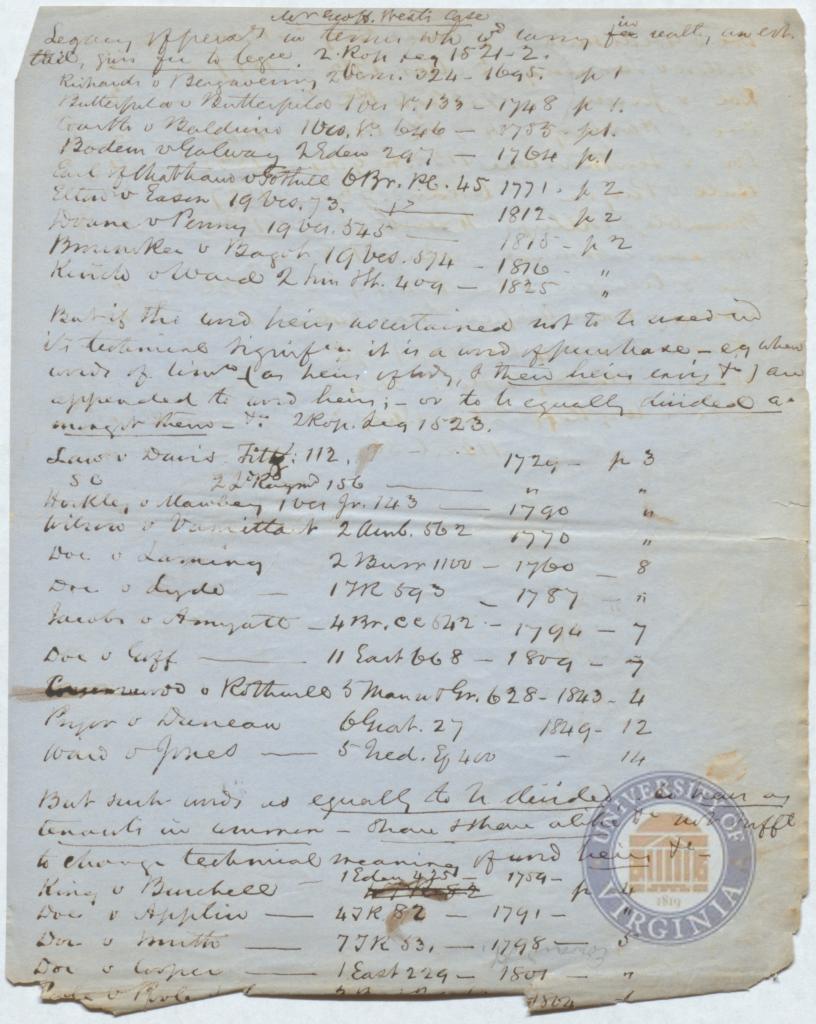 Mr Geo H. West's Case
Legacy of pers in terms wh wd carry in realty, an est
tail, gives fee to legee. 2 Rop Leg 1521-2.
Richards v Bergavenny 2 Vern. 324 - 1695. p 1
Butterfield v Butterfield 1 Ves Sr. 133 - 1748 p 1.
v Baldwin 1 Ves. Sr 646 - 1755 - p 1.
Bodem v Galway 2 Eden 297 - 1764 p. 1
Earl of Chatham v Tothill 6 Br. P.C. 45 1771. p 2
Elton v Eason 19 Ves. 73. - 1812 - p 2
Donne v Penny 19 Ves. 545 - 1815 - p 2
Brouncker v Bagot 19 Ves. 574 - 1816 - "
v Ward 2 Sim & St. 409 - 1825 "
But if the word heirs ascertained not to be used in
its technical signifn it is a word of purchase - eg when
words of limn (as heirs of body, & their heirs exrs &c) are
appended to word heirs; - or to be equally divided a-
mongst them - &c. 2 Rop. Leg 1523.
Law v Davis Fitzg: 112. 1729 - p 3
SC 2 Ld Raymd 156 - " "
v Mawbey 1 Ves Jr. 143 - 1790 "
Wilson v Vansittart 2 Amb. 562 1770 "
Doe v Laming 2 Burr 1100 - 1760 - 8
Doe v Lyde - 1 TR 593 - 1787 - "
Jacobs v Amyatt - 4 Br. CC 542 - 1794 - 7
Doe v Goff - 11 East 668 - 1809 - 7
v Rothwell 5 Man & Gr. 628 - 1843 - 4
Pryor v Duncan 6 Grat. 27 1849 - 12
Ward v Jones - 5 Ired. Eq 400 - 14
But such words as equally to be divided, & heirs as
tenants in common - share & share alike &c not sufft
to change technical meaning of word heirs &c -
King v Burchell - 1 Eden 425 - 1759 - p 4
Doe v Applin - 4 TR 82 - 1791 - "
Doe v Smith - 7 TR 531. - 1798 - 5
Doe v Cooper - 1 East 229 - 1801 - "
1804
UNIVERSITY OF VIRGINIA
1819